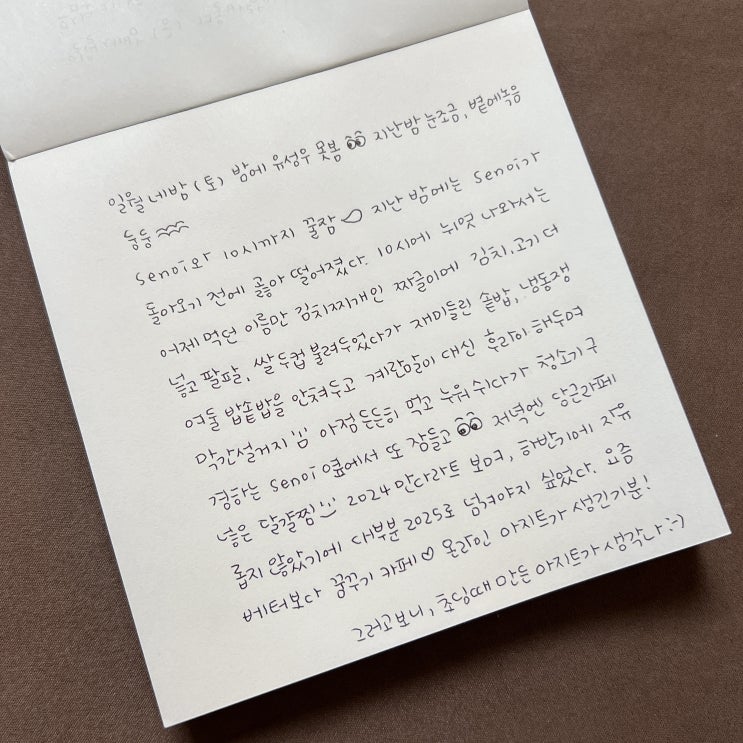 일월 네밤 (토) 밤에 유성우 못봄 👀 지난밤 눈조금, 볕에녹음
둥둥
senoi와 10시까지 꿀잠 지난 밤에는 senoi가
돌아오기 전에 곯아 떨어졌다. 10시에 뉘엿 나와서는
어제 먹던 이름만 김치찌개인 짜글이에 김치, 고기 더
넣고 팔팔, 쌀 두컵 불려두었다가 재미들린 솥밥, 냉동쟁
여둘 밥솥밥을 안쳐두고 계란말이 대신 후라이 해두며
막간설거지 아점 든든히 먹고 누워 쉬다가 청소기 구
경하는 senoi 옆에서 또 잠들고 👀 저녁엔 당근라페
넣은 달걀찜 2024 만다라트 보며, 하반기에 자유
롭지 않았기에 대부분 2025로 넘겨야지 싶었다. 요즘
베터보다 꿈꾸기 카페♡ 온라인 아지트가 생긴기분!
그러고보니, 초딩때 만든 아지트가 생각나 :-)